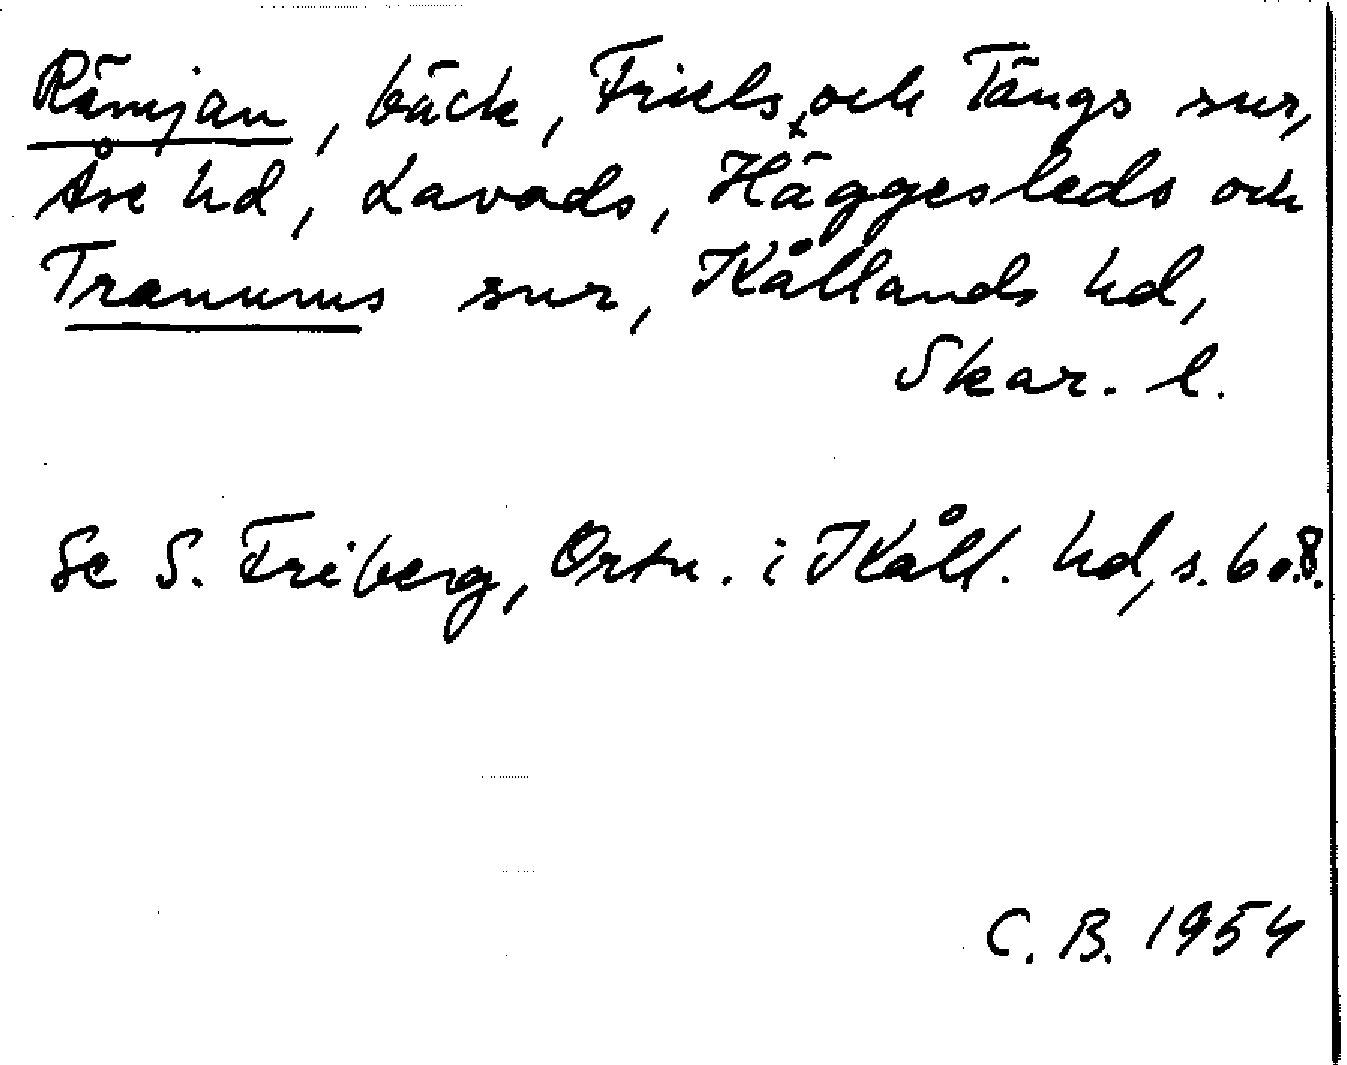 Rämjan, bäck, Friels och Tängs snr,
Åse hd, Lavads, Häggesleds och
Tranums snr, Kållands hd,
Skar. l.
Se S. Friberg, Ortn. i Kåll. hd, s. 6 o. 8.
C. B. 1954